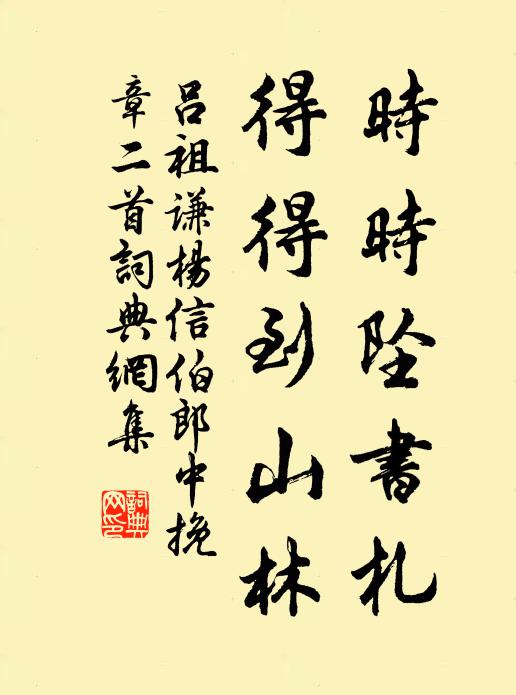 時時坠書札
得得到山林
吕祖谦楊信伯郎中挽
章二首詞典網集
詞典
网印